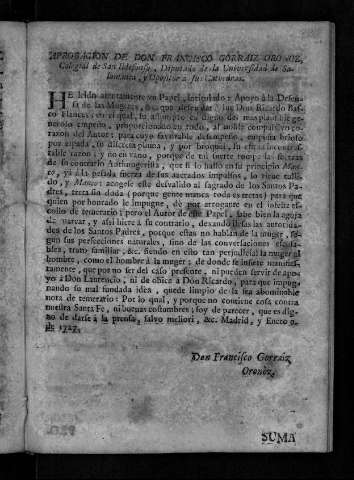 APROBACION DE DON FRANCISCO GORRAIZ ORONOZ,
Colegial de San Ildefonso, Diputado de la Universidad de Salamanca, y Opositor à sus Cathedras.
HE leìdo atentamente un Papel, intitulado: Apoyo à la Defensa
de las Mugeres, &c. que
en el qual, su assumpto es digno del mas plausible generoso empeño, proporcionado en todo, al noble compassivo corazon del Autor: para cuyo favorable desempeño, empuña brioso
por espada, su discreta pluma, y por broquèl, su
razon: y no en vano, porque de tal suerte
de su contrario
ya à la pesada fuerza de sus
do, y Manco: acogese este desvalido al sagrado de los Santos Padres, treta sin duda (porque gente manca toda es tretas) para que
quien por honrado le impugne, dè por arrogante en el
collo de temerario: pero el Autor de este Papel, sabe bien la aguja
de marear, y assi hiere à su contrario, dexando ilesas las autoridades de los Santos Padres, porque estas no hablan de la muger, segun sus perfecciones naturales, sino de las conversaciones
trato familiar, &c. siendo en esto tan perjudicial la muger al
hombre, como el hombre à la muger: de donde se infiere
que por no ser del caso presente, ni pueden servir de apoyo à Don Laurencio, ni de obice à Don Ricardo, para que impugnando su mal fundada idea, quede limpio de la fea abominable
nota de temerario: Por lo qual, y porque no contiene cosa contra
nuestra Santa Fè, ni buenas costumbres; soy de parecer, que es digno de darse à la prensa, salvo meliori, &c. Madrid, y Enero 9.
de 1727.
Don Francisco Gorraiz
Oronoz.
SUMA